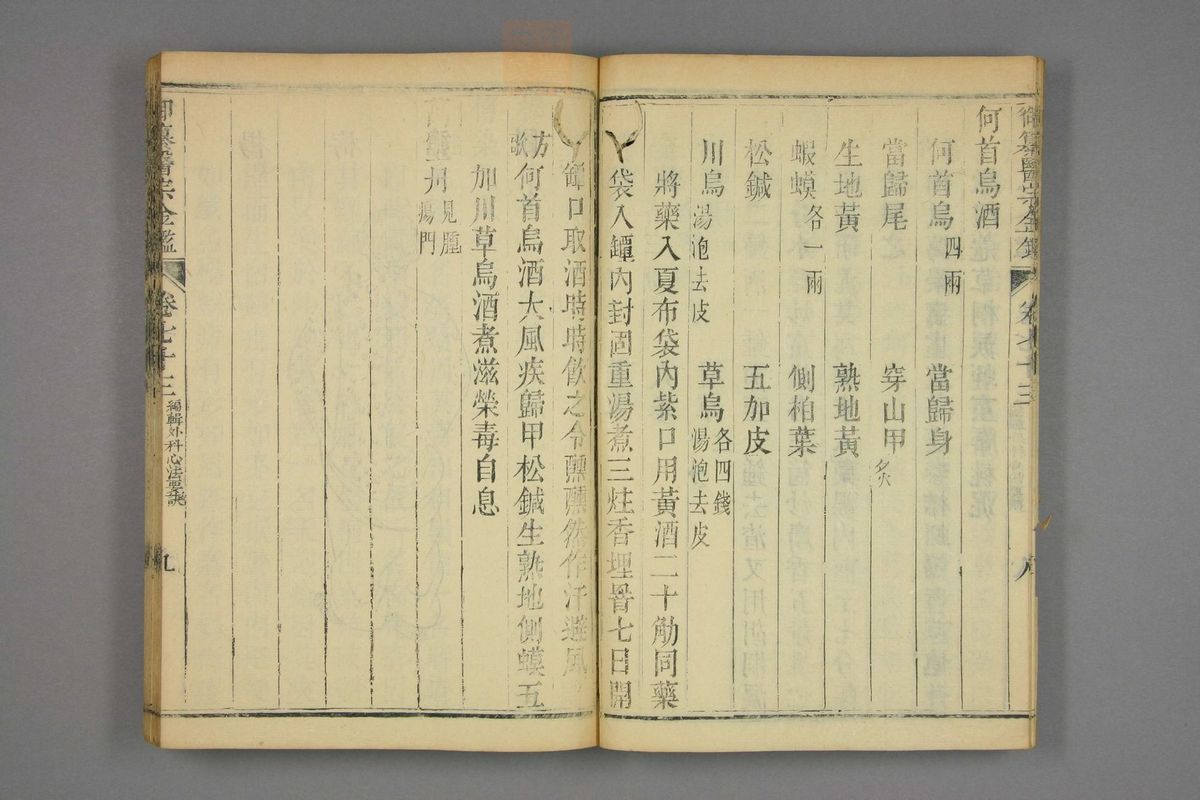 御纂醫宗金鑑 卷七十三
何首烏酒
何首烏四兩 當歸身
當歸尾 穿山甲炙
生地黃 熟地黃
蝦蟆各一兩 側柏葉
松鍼 五加皮
川烏湯泡去皮 草烏各四錢湯泡去皮
將藥入夏布袋內紮口用黃酒二十觔同藥
袋入罈內封固重湯煮三炷香埋晉七日開
罈口取酒時時飲之令醺醺然作汗避風
方歌 何首烏酒大風疾歸甲松鍼生熟地側蟆五
加川草烏酒煮滋榮毒自息
見腫瘍門
御纂醫宗金鑑 卷七十三 編輯外科心法要訣 九